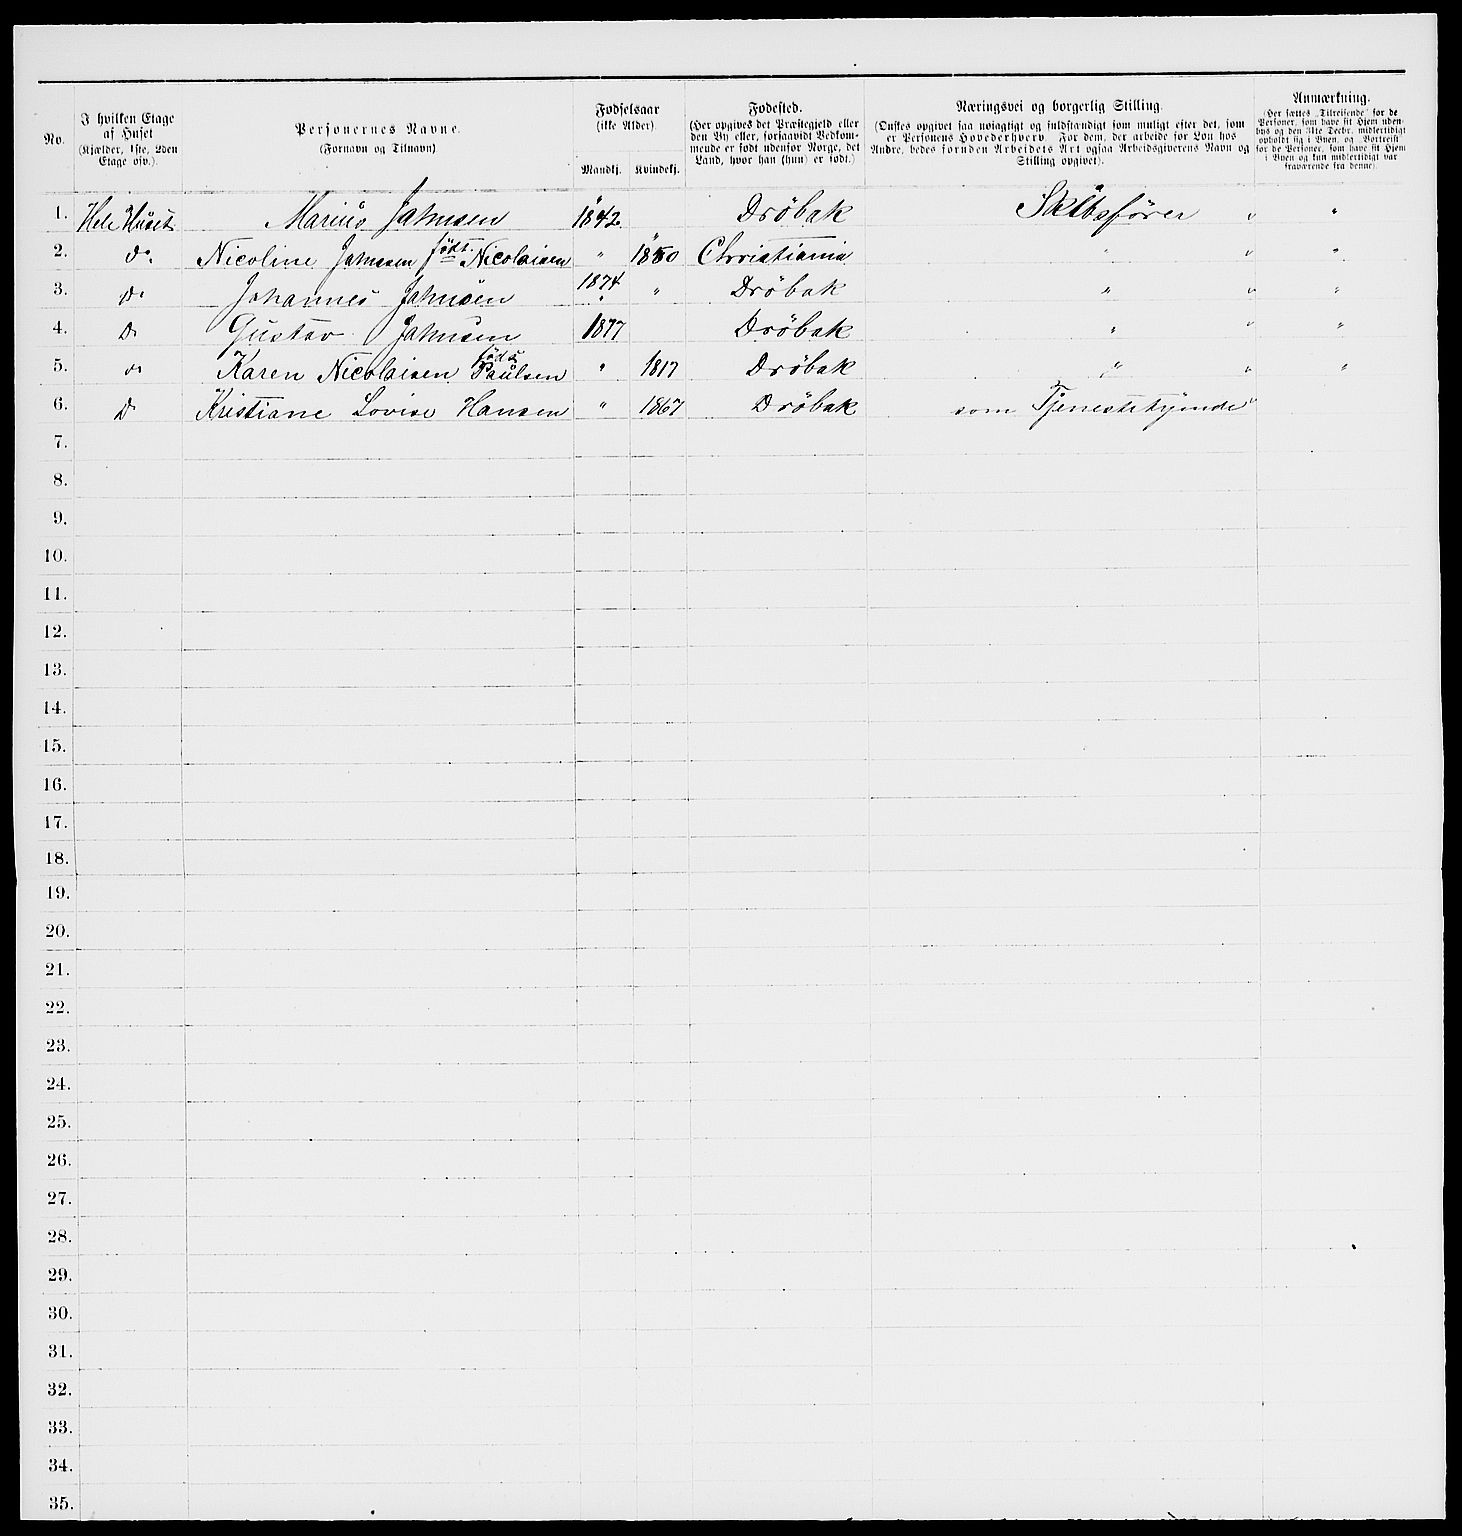 No.
I hvilken Etage
af Huset
(Kjælder, 1ste, 2den
Etage osv.).
Personernes Navne.
(Fornavn og Tilnavn)
Fødselsaar
(ikke Alder)
Mandkj. Kvindekj.
Fødested.
(Her opgives det Præstegjeld eller
den By eller, forsaavidt Vedkom-
mende er født udenfor Norge, det
Land, hvor han (hun) er født.)
Næringsvei og borgerlig Stilling.
(Ønskes opgivet saa nøiagtigt og fuldstændigt som muligt efter det, som
er Personens Hovederhverv. For dem, der arbeide for Løn hos
Andre, bedes foruden Arbeidets Art ogsaa Arbeidsgiverens Navn og
Stilling opgivet).
Anmærkning.
(Her sættes „Tilreisende“ for de
Personer, som have sit Hjem uden-
bys og den 31te Decbr. midlertidigt
opholdt sig i Byen, og „Bortreist“
for de Personer, som have sit Hjem
i Byen og kun midlertidigt var
fraværende fra denne).
1. Hele Huset Marius Jahnsen " 1842 Dröbak Skibsförer " "
2. do. Nicoline Jahnsen födt Nicolaisen " " 1850 Christiania " " "
3. Do Johannes Jahnsen 1874 " " Dröbak " " "
4. D Gustav Jahnsen 1877 Dröbak " " "
5. do Karen Nicolaisen född Paulsen " 1817 Dröbak " " "
6. D Kristiane Lovise Hansen " 1867 Dröbak som Tjenestetyende "
7.
8.
9.
10.
11.
12.
13.
14.
15.
16.
17.
18.
19.
20.
21.
22.
23.
24.
25.
26.
27.
28.
29.
30.
31.
32.
33.
34.
35.